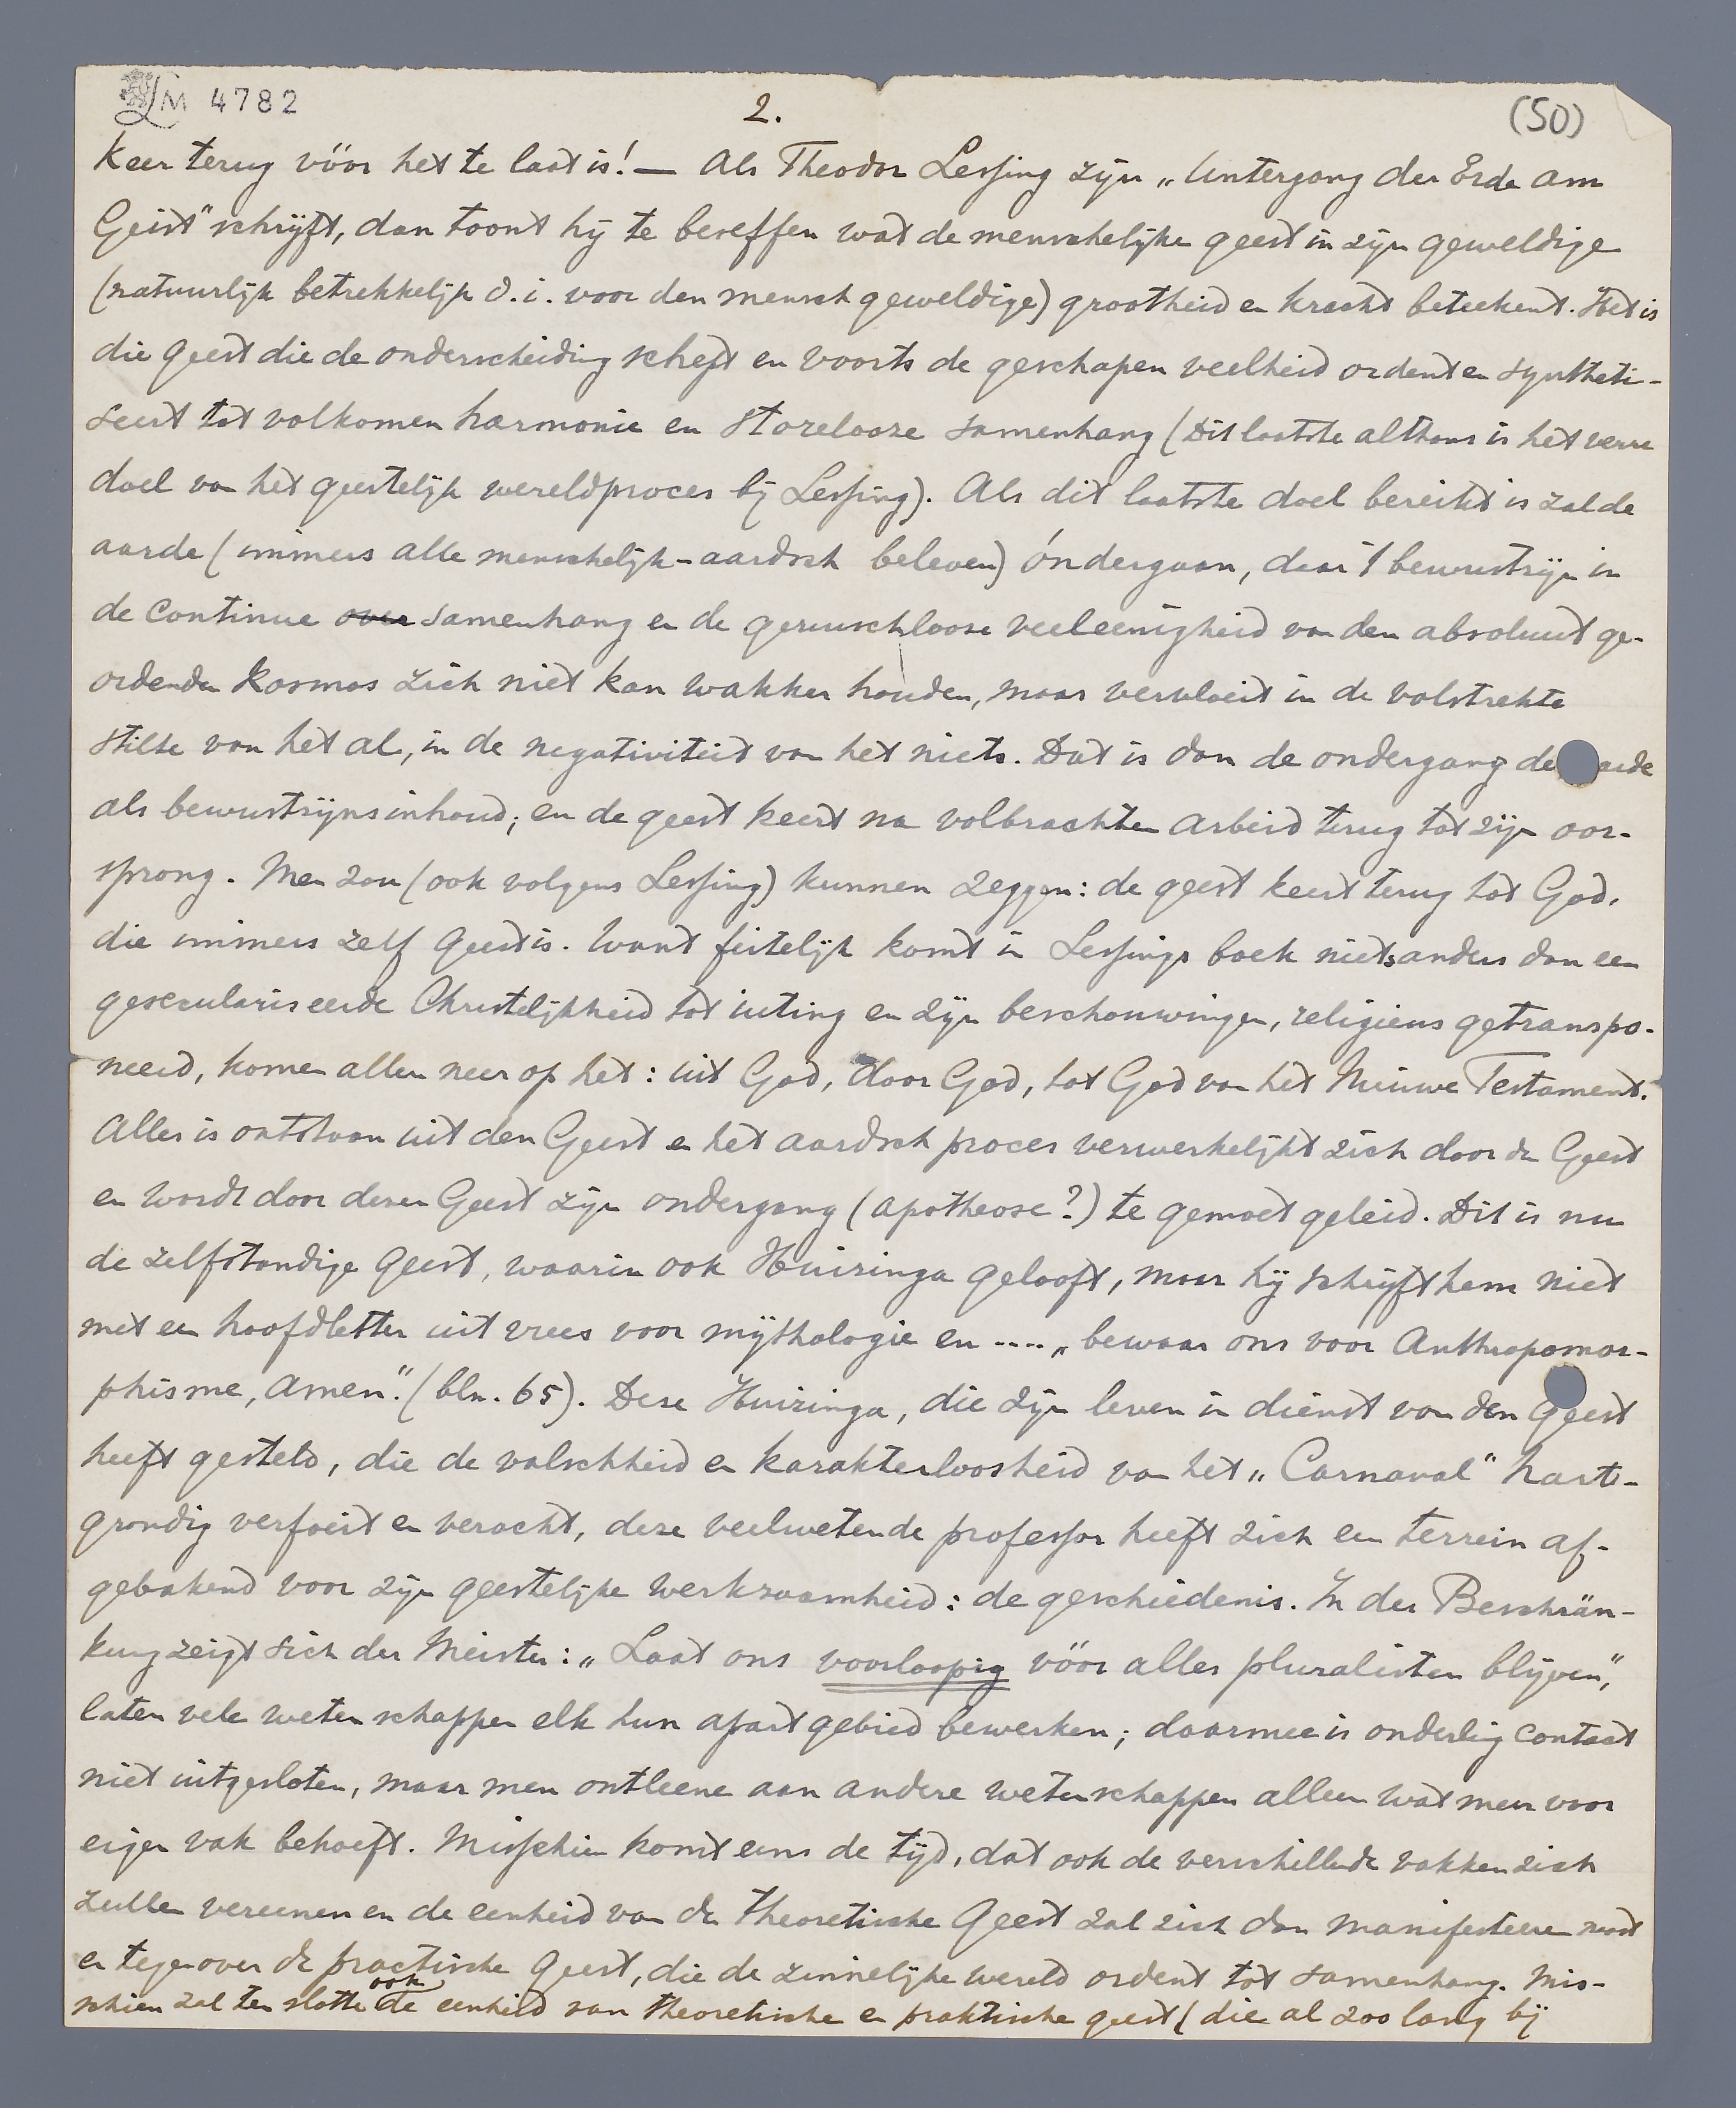 LM 4782
2.
(50)
Keer terug vóór het te laat is! — Als Theodor Lessing zijn „Untergang der Erde am
Geist" schrijft, dan toont hij te beseffen wat de menschelijke geest in zijn geweldige
(natuurlijk betrekkelijk d.i. voor den mensch geweldige) grootheid en kracht beteekent. Het is
die geest die de onderscheiding schept en voorts de geschapen veelheid ordent en syntheti-
seert tot volkomen harmonie en storelooze samenhang (Dit laatste althans is het verre
doel van het geestelijk wereldproces bij Lessing). Als dit laatste doel bereikt is zal de
aarde (immers alle menschelijk-aardsch beleven) óndergaan, daar 't bewustzijn in
de continue over samenhang en de geruischlooze veeleenigheid van den absoluut ge-
ordenden kosmos zich niet kan wakker houden, maar vervloeit in de volstrekte
stilte van het al, in de negativiteit van het niets. Dat is dan de ondergang de arde
als bewustzijnsinhoud; en de geest keert na volbrachten arbeid terug tot zijn oor-
sprong. Men zou (ook volgens Lessing) kunnen zeggen: de geest keert terug tot God,
die immers zelf geest is. Want feitelijk komt in Lessings boek niets anders dan een
geseculariseerde Christelijkheid tot uiting en zijn beschouwingen, religieus getranspo-
neerd, komen allen neer op het: uit God, door God, tot God van het Nieuwe Testament.
Alles is ontstaan uit den Geest en het aardsch proces verwerkelijkt zich door de Geest
en wordt door dezen Geest zijn ondergang (apotheose?) te gemoet geleid. Dit is nu
de zelfstandige geest, waarin ook Huizinga gelooft, maar hij schrijft hem niet
met een hoofdletter uit vrees voor mythologie en .... „bewaar ons voor Anthropomor-
phisme, amen". (blz. 65). Deze Huizinga, die zijn leven in dienst van den Geest
heeft gesteld, die de valschheid en karakterloosheid van het „Carnaval" hart-
grondig verfoeit en veracht, deze veelwetende professor heeft zich een terrein af-
gebakend voor zijn geestelijke werkzaamheid: de geschiedenis. In der Beschrän-
kung zeigt sich der Meister: „Laat ons voorloopig vóór alles pluralisten blijven",
laten vele wetenschappen elk hun apart gebied bewerken; daarmee is onderling contact
niet uitgesloten, maar men ontleene aan andere wetenschappen alleen wat men voor
eigen vak behoeft. Misschien komt eens de tijd, dat ook de verschillende vakken zich
zullen vereenen en de eenheid van de theoretische Geest zal zich dan manifesteeren naast
en tegenover de practische Geest, die de zinnelijke wereld ordent tot samenhang. Mis-
schien zal ten slotte ook de eenheid van theoretische en praktische geest (die al zoo lang bij